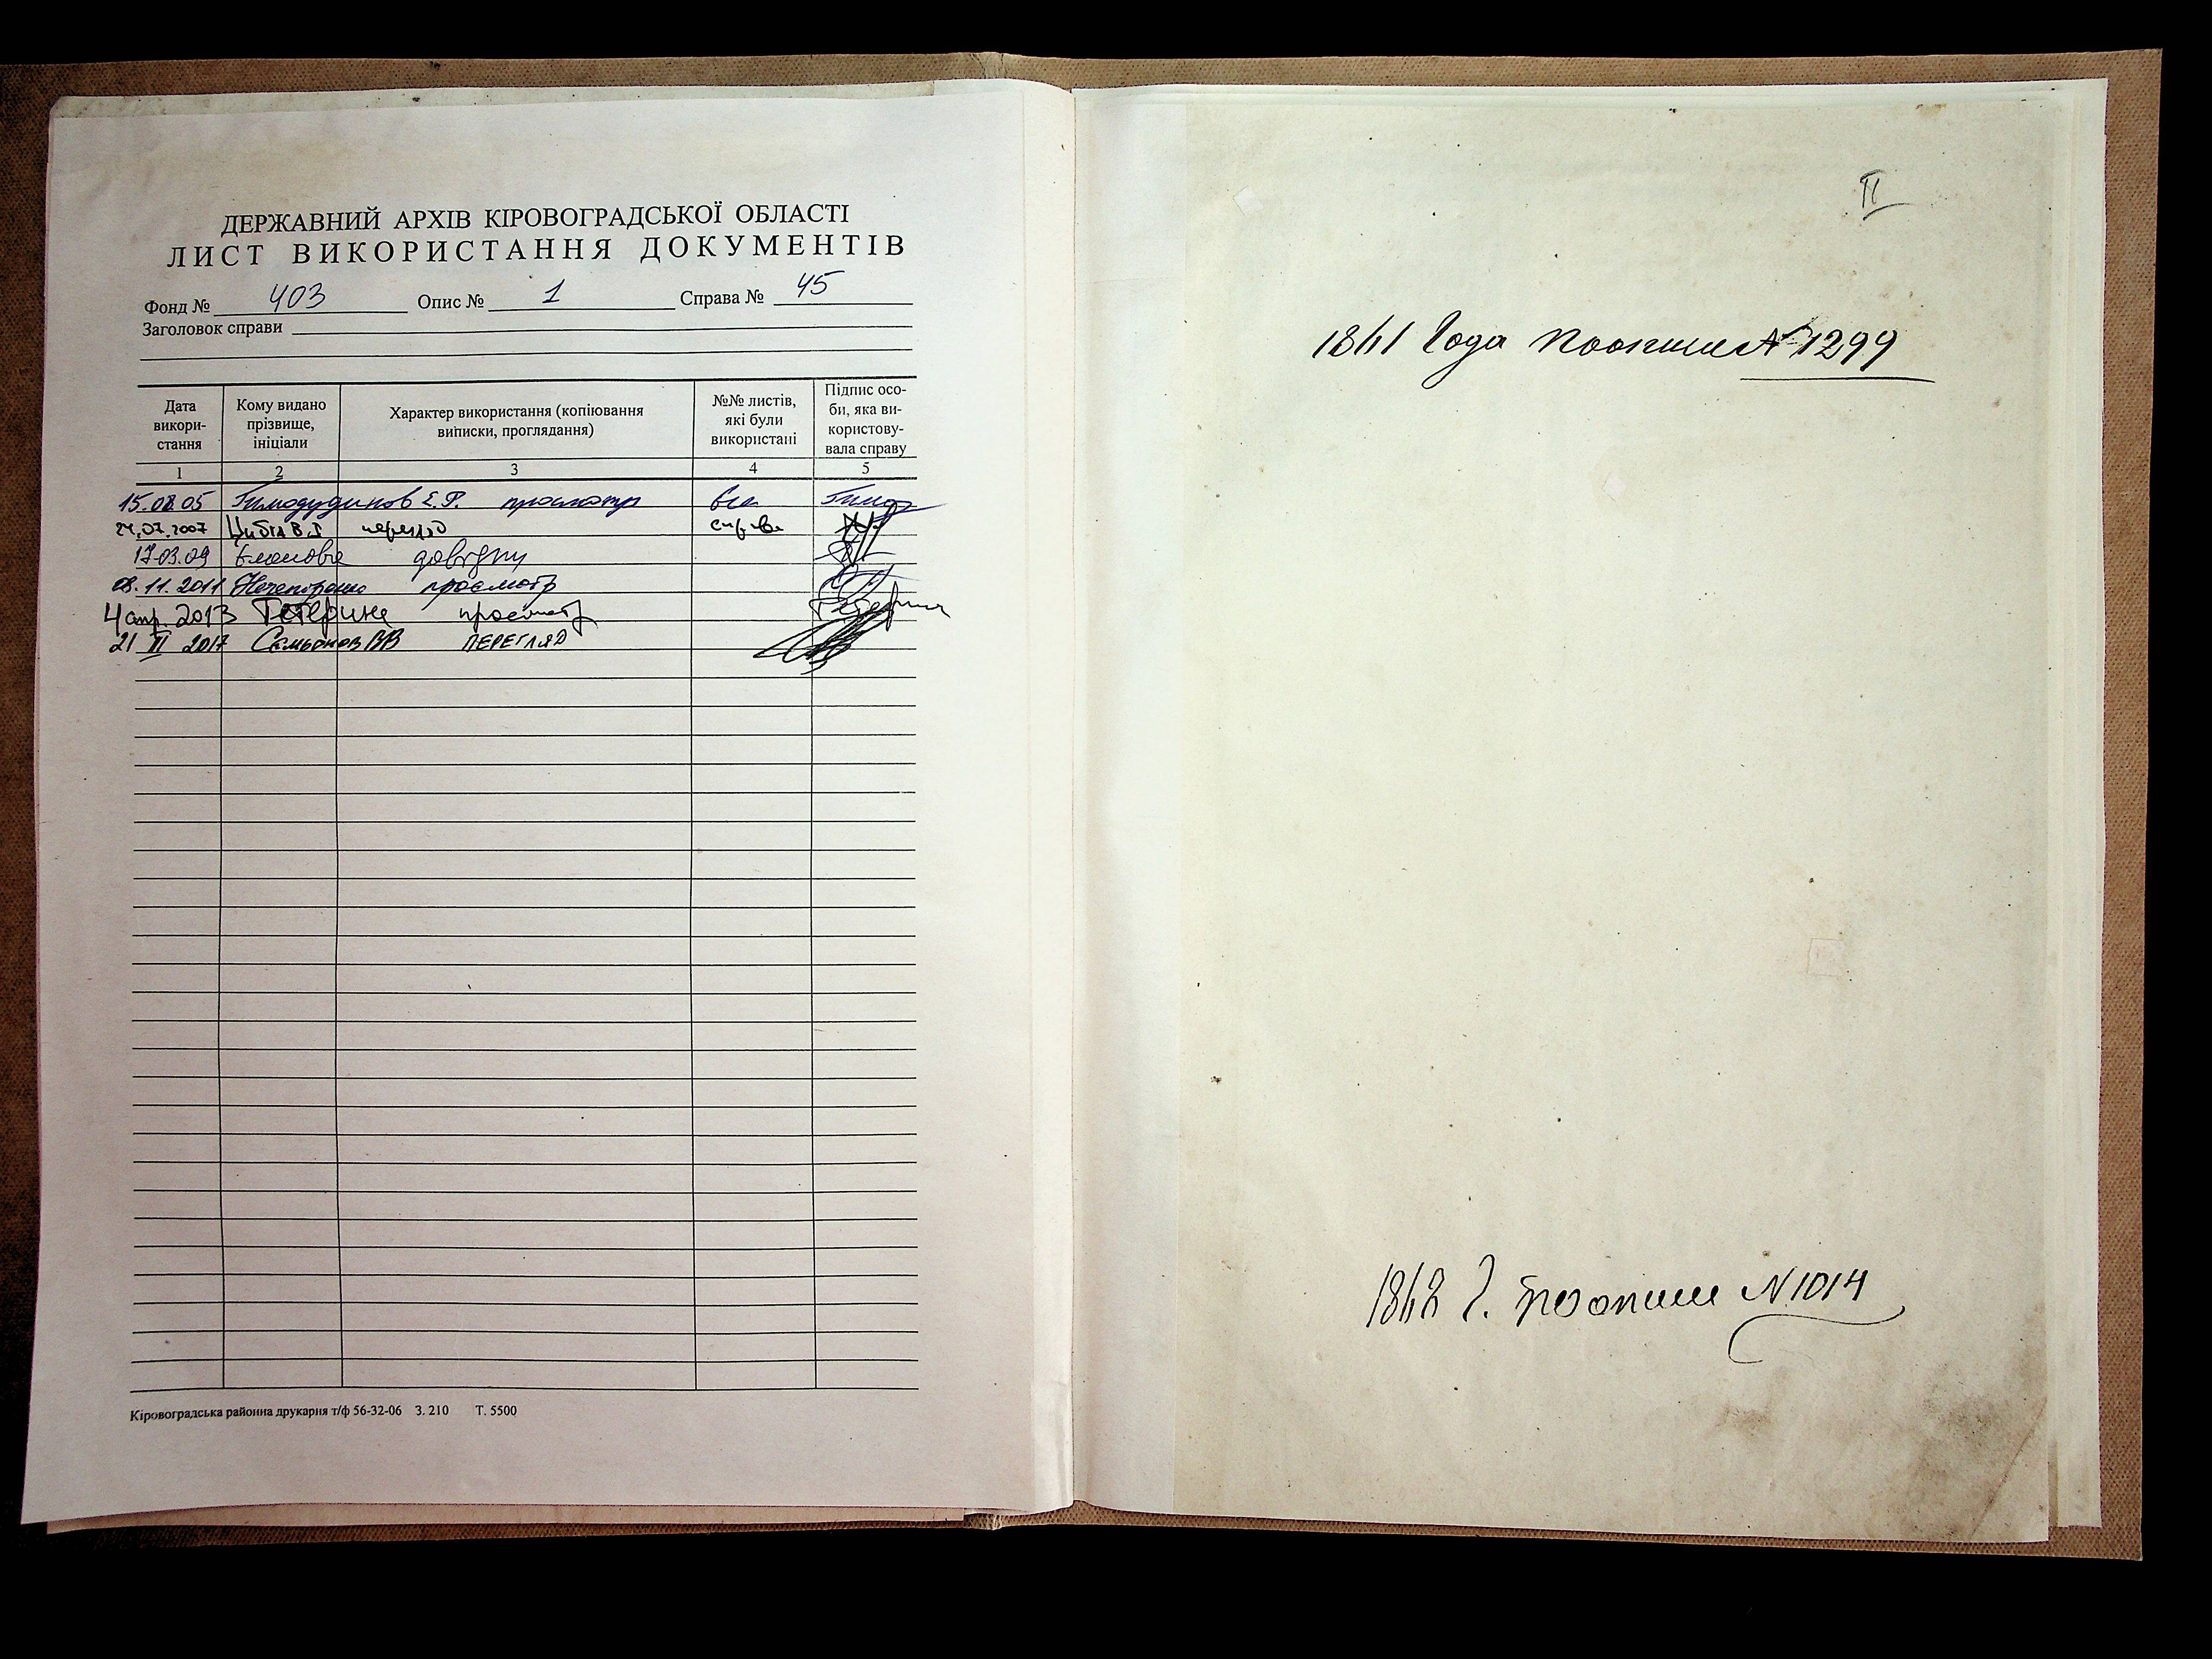 ДЕРЖАВНИЙ АРХІВ КІРОВОГРАДСЬКОЇ ОБЛАСТІ
ЛИСТ ВИКОРИСТАННЯ ДОКУМЕНТІВ
Фонд № 403 Опис № 1 Справа № 45
Заголовок справи
Дата викори-стання
Кому видано прізвище, ініціали
Характер використання (копіювання виписки, проглядання)
№№ листів, які були використані
Підпис осо-би, яка ви-користову-вала справу
1 2 3 4 5
15.08.05 Е.Р. просмотр все
24.07.2007 Цибта В.І справа
17.03.09
08.11.2011 Нечепоренко просмотр
4 апр. 2013 Тетерина просмотр
21 2017 Семьонов ВВ ПЕРЕГЛЯД
Кіровоградська районна друкарня т/ф 56-32-06 З. 210 Т. 5500
II
1861 Года по описи № 1299
1868 Г. по описи № 1014